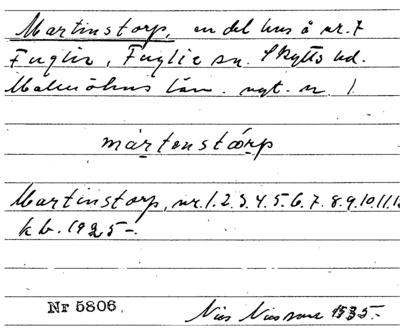 Martinstorp, en del hus å nr. 7
Fuglie, Fuglie sn. Skytts hd.
Malmöhus län. nyt. nr. 1.
mårtenstårp
Martinstorp, nr. 1. 2. 3. 4. 5. 6. 7. 8. 9. 10. 11. 12
kb. 1925-.
Nr 5806.
Nils Nilsson 1935-.